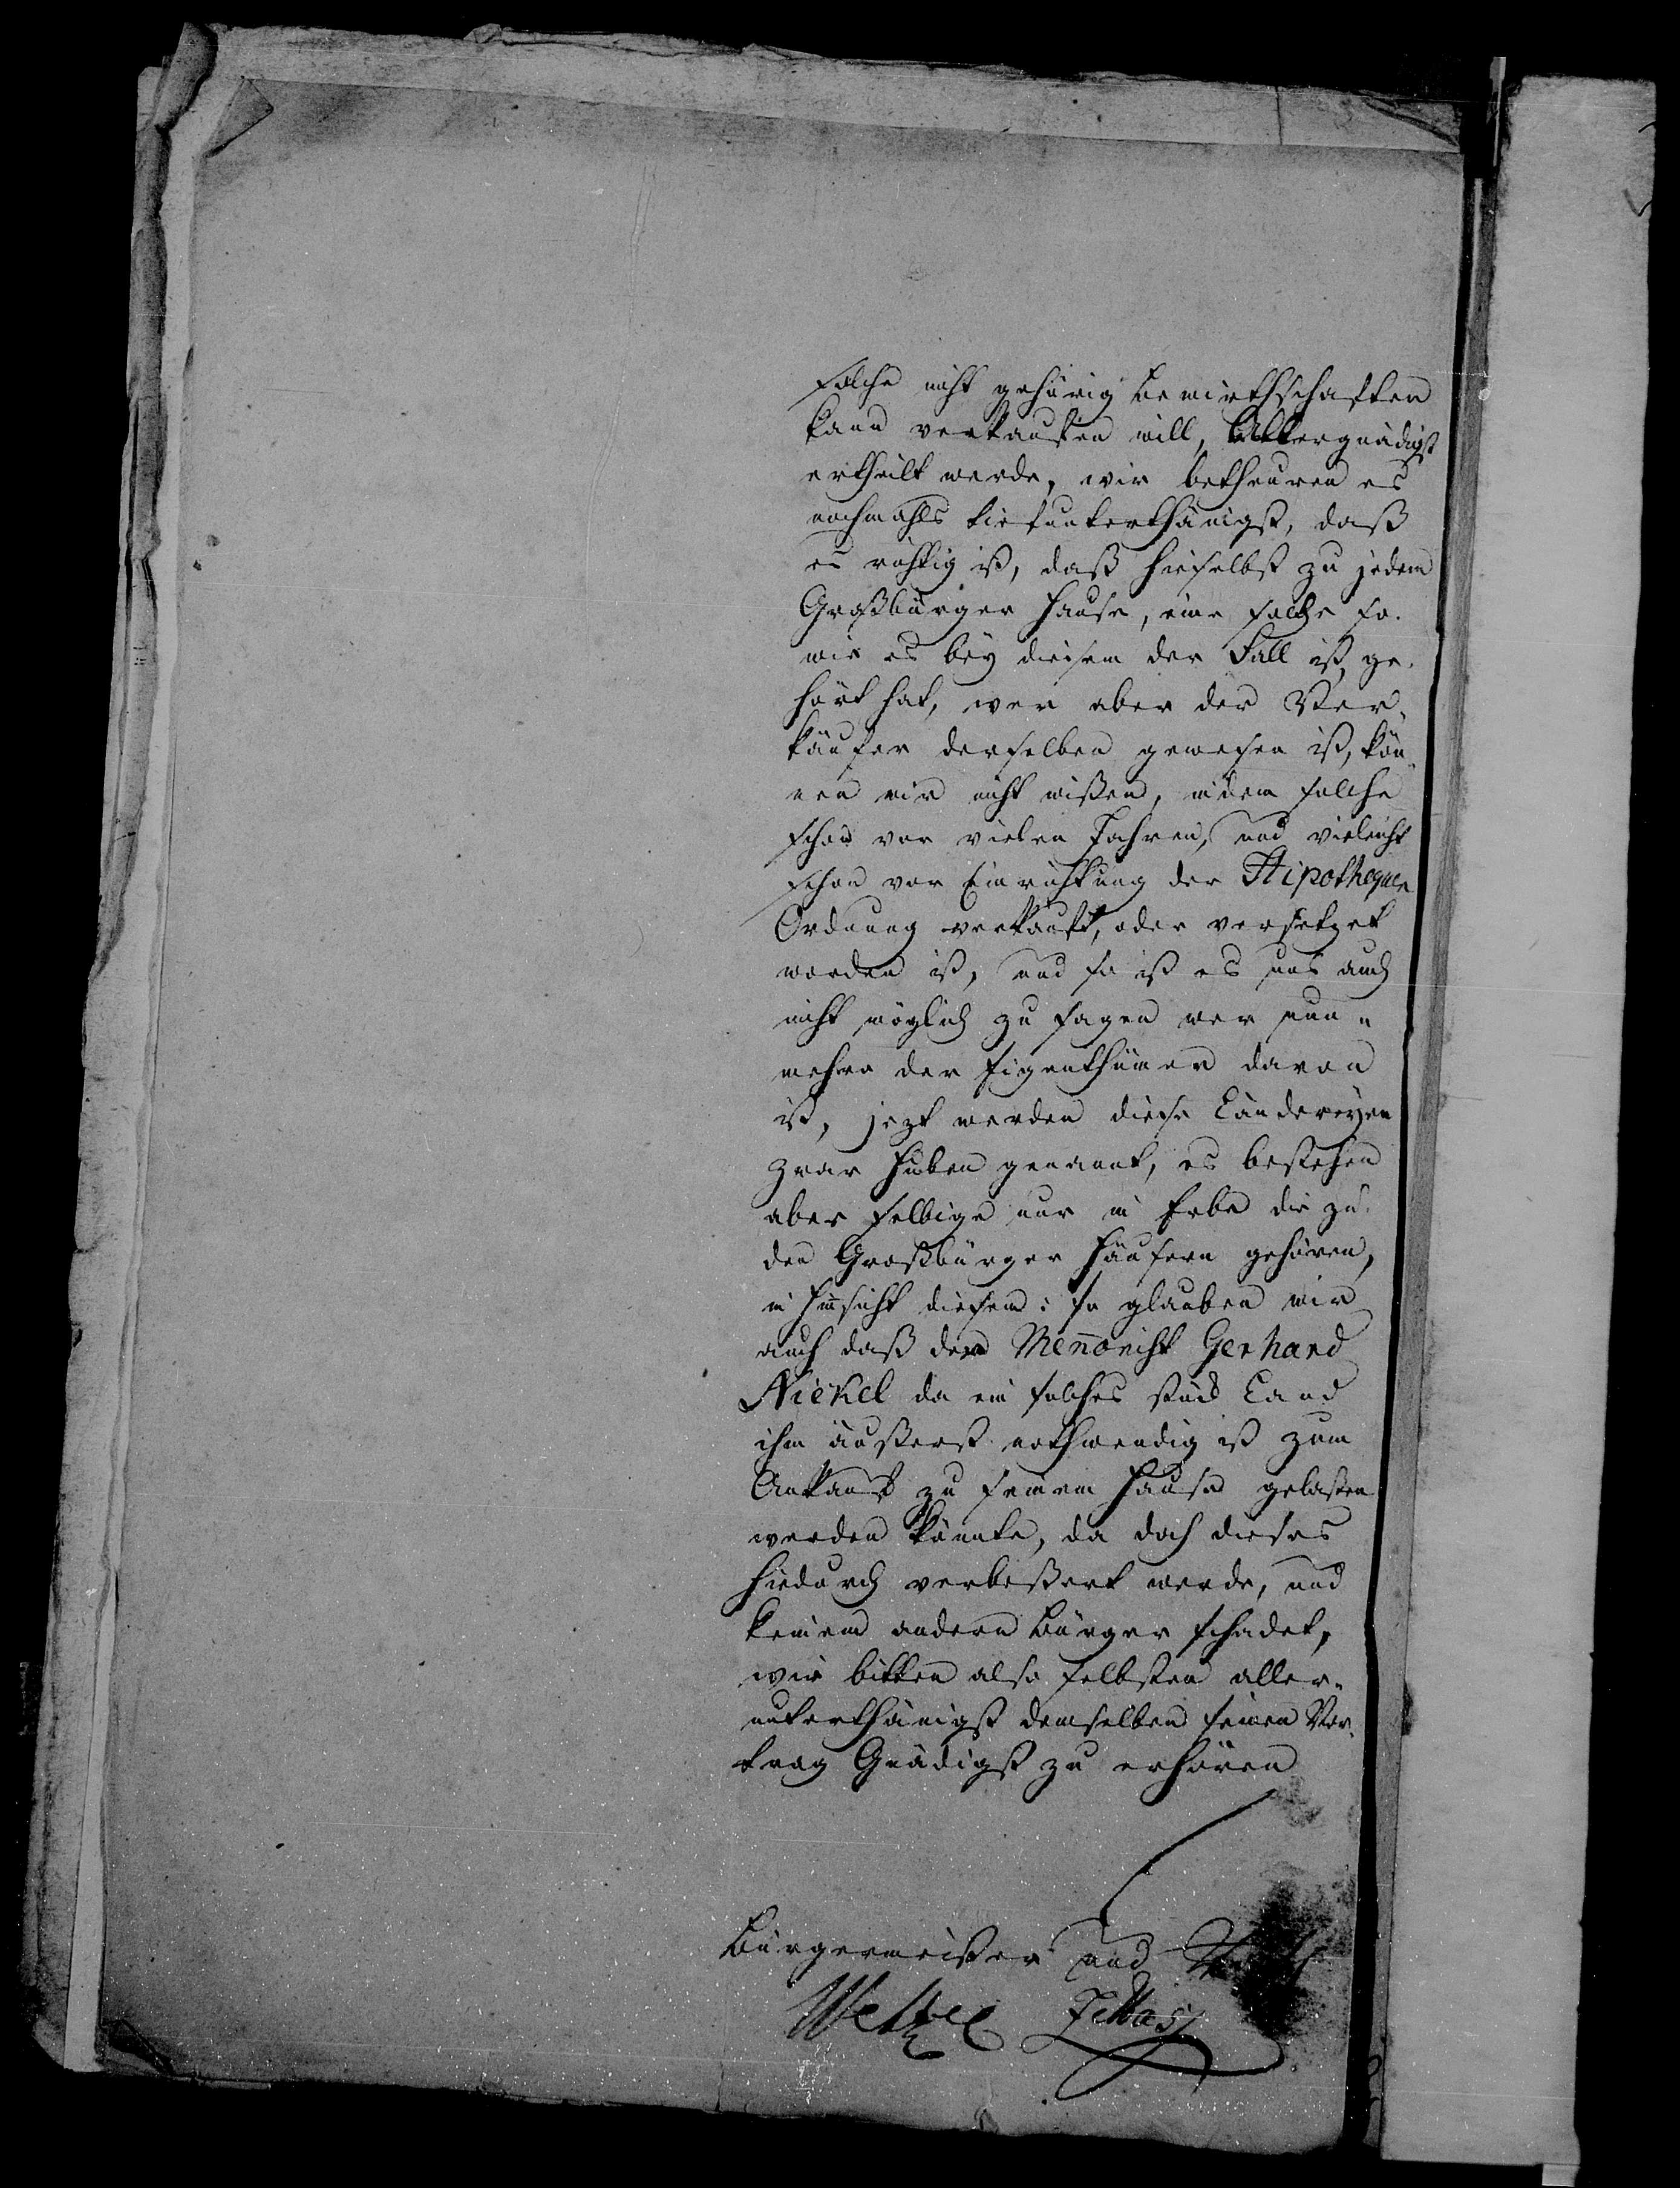 solche nicht gehörig bewirthschaften
kann verkaufen will, Allergnädigst
ertheilt werde, wir betheuren es
nochmahls tiefunterthänigst, daß
es richtig ist, daß hieselbst zu jedem
Großbürger Hause, eine solche so
wie es bey diesem der Fall ist, ge-
hört hat, wer aber der Ver-
käufer derselben gewesen ist, kön-
nen wir nicht wißen, indem solche
schon vor vielen Jahren, und vieleicht
schon vor Einrichtung der Hipothequen
Ordnung verkauft, oder versetzet
worden ist, und so ist es uns auch
nicht möglich zu sagen wer nun-
mehro der Eigenthümer davon
ist, jezt werden diese Ländereyen
zwar Huben genannt, es bestehen
aber selbige nur in Erbe die zu
den Großbürger Häusern gehören,
in Hinsicht diesem: so glauben wir
auch daß dem Menonist Gerhard
Nickel da ein solches stück Land
ihm äußerst nothwendig ist zum
Ankauf zu seinem Hause gelaßen
werden könnte, da doch dieses
hiedurch verbeßert werde, und
keinem andern Bürger schadet,
wir bitten also selbsten aller-
unterthänigst demselben seinen Vor-
trag Gnädigst zu erhören
Bürgermeister und
Wetzel